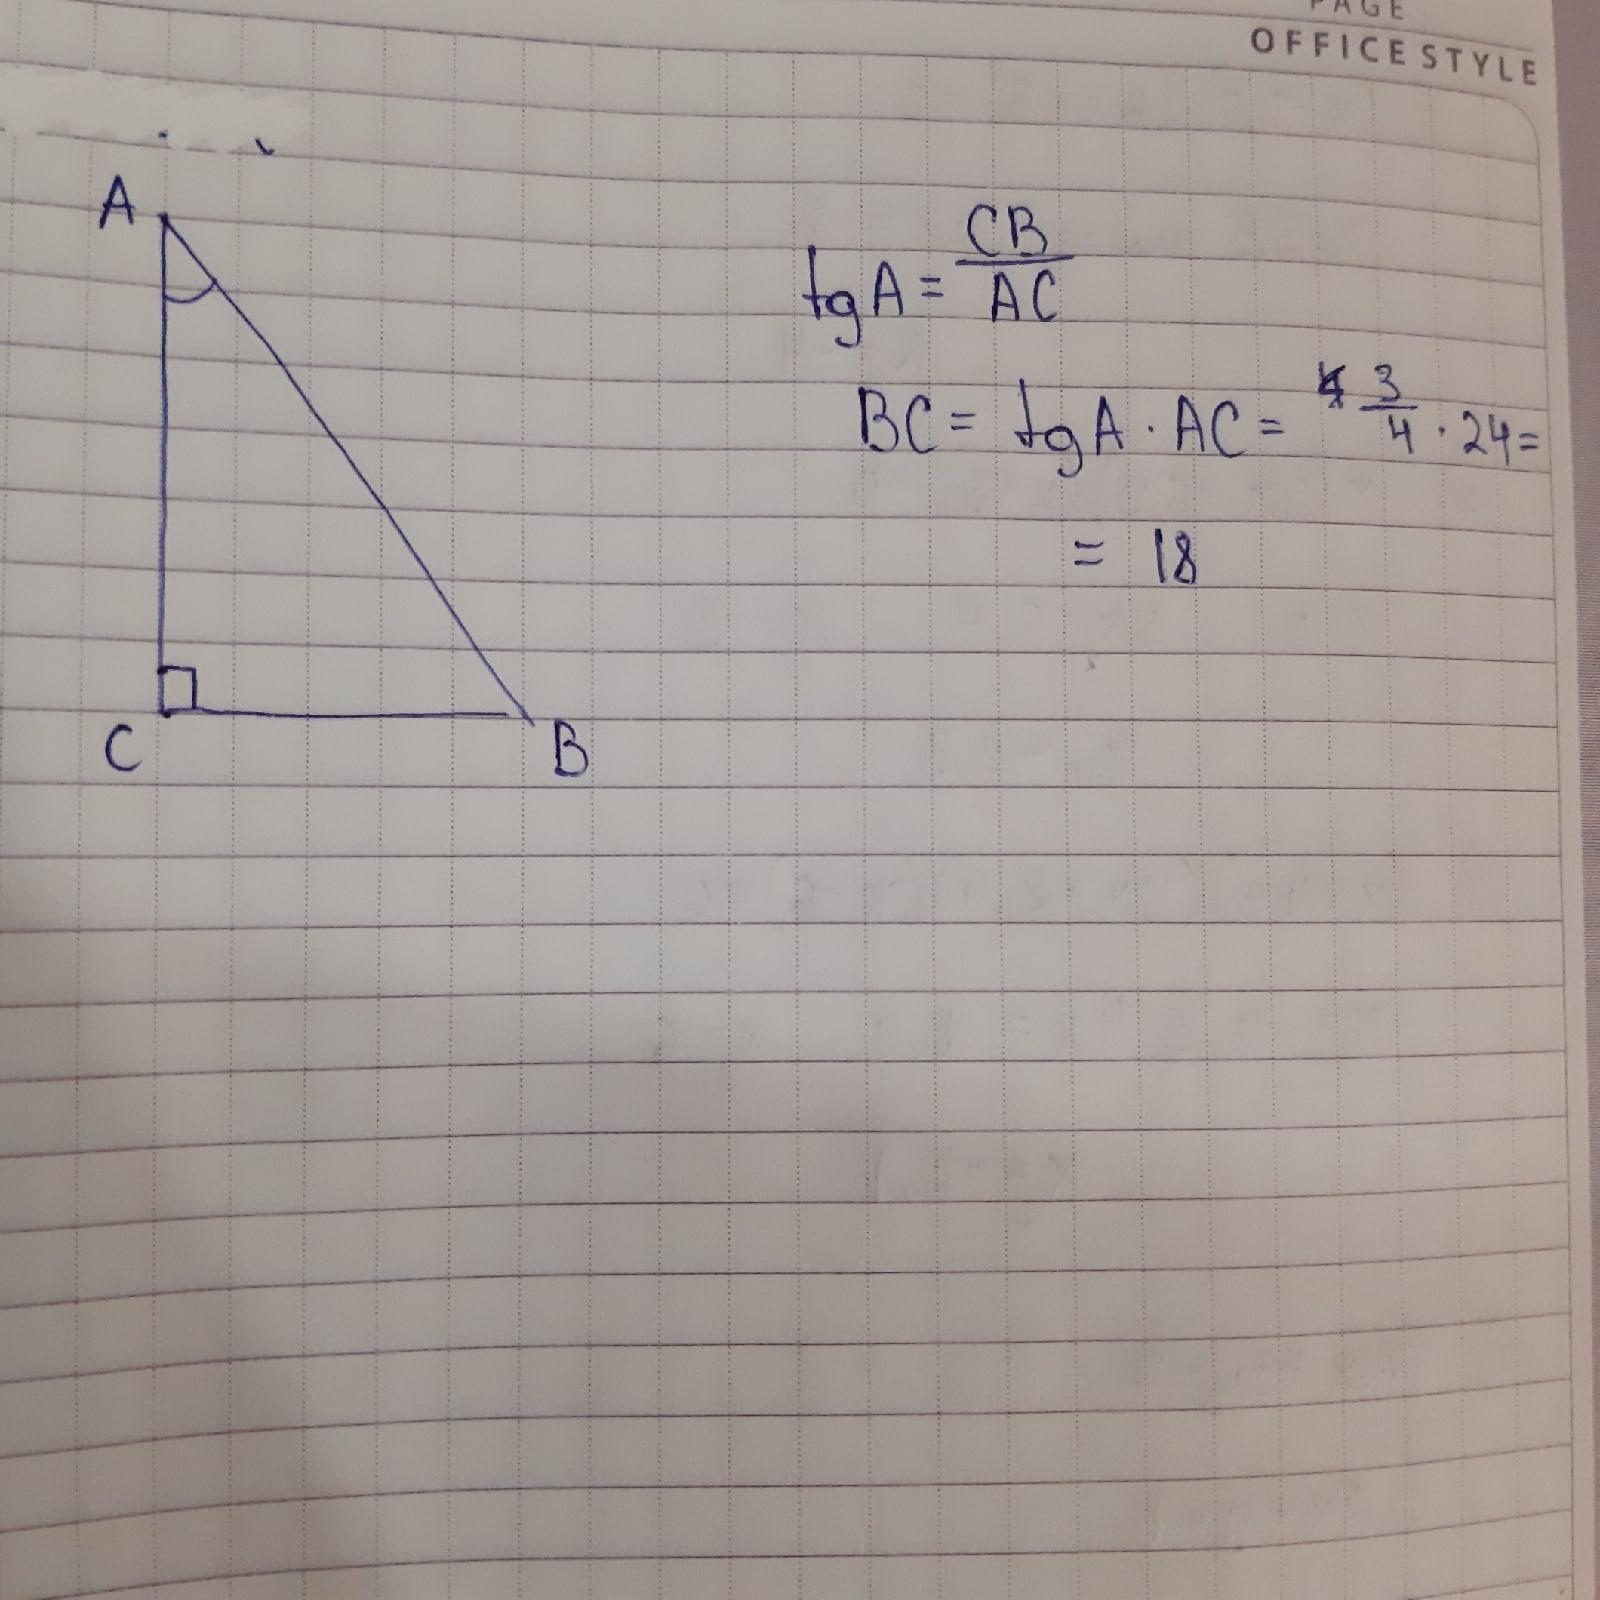 PAGE
OFFICE STYLE
A
C
B
tgA = CB/AC
BC = tgA · AC = 3/4 · 24 =
= 18